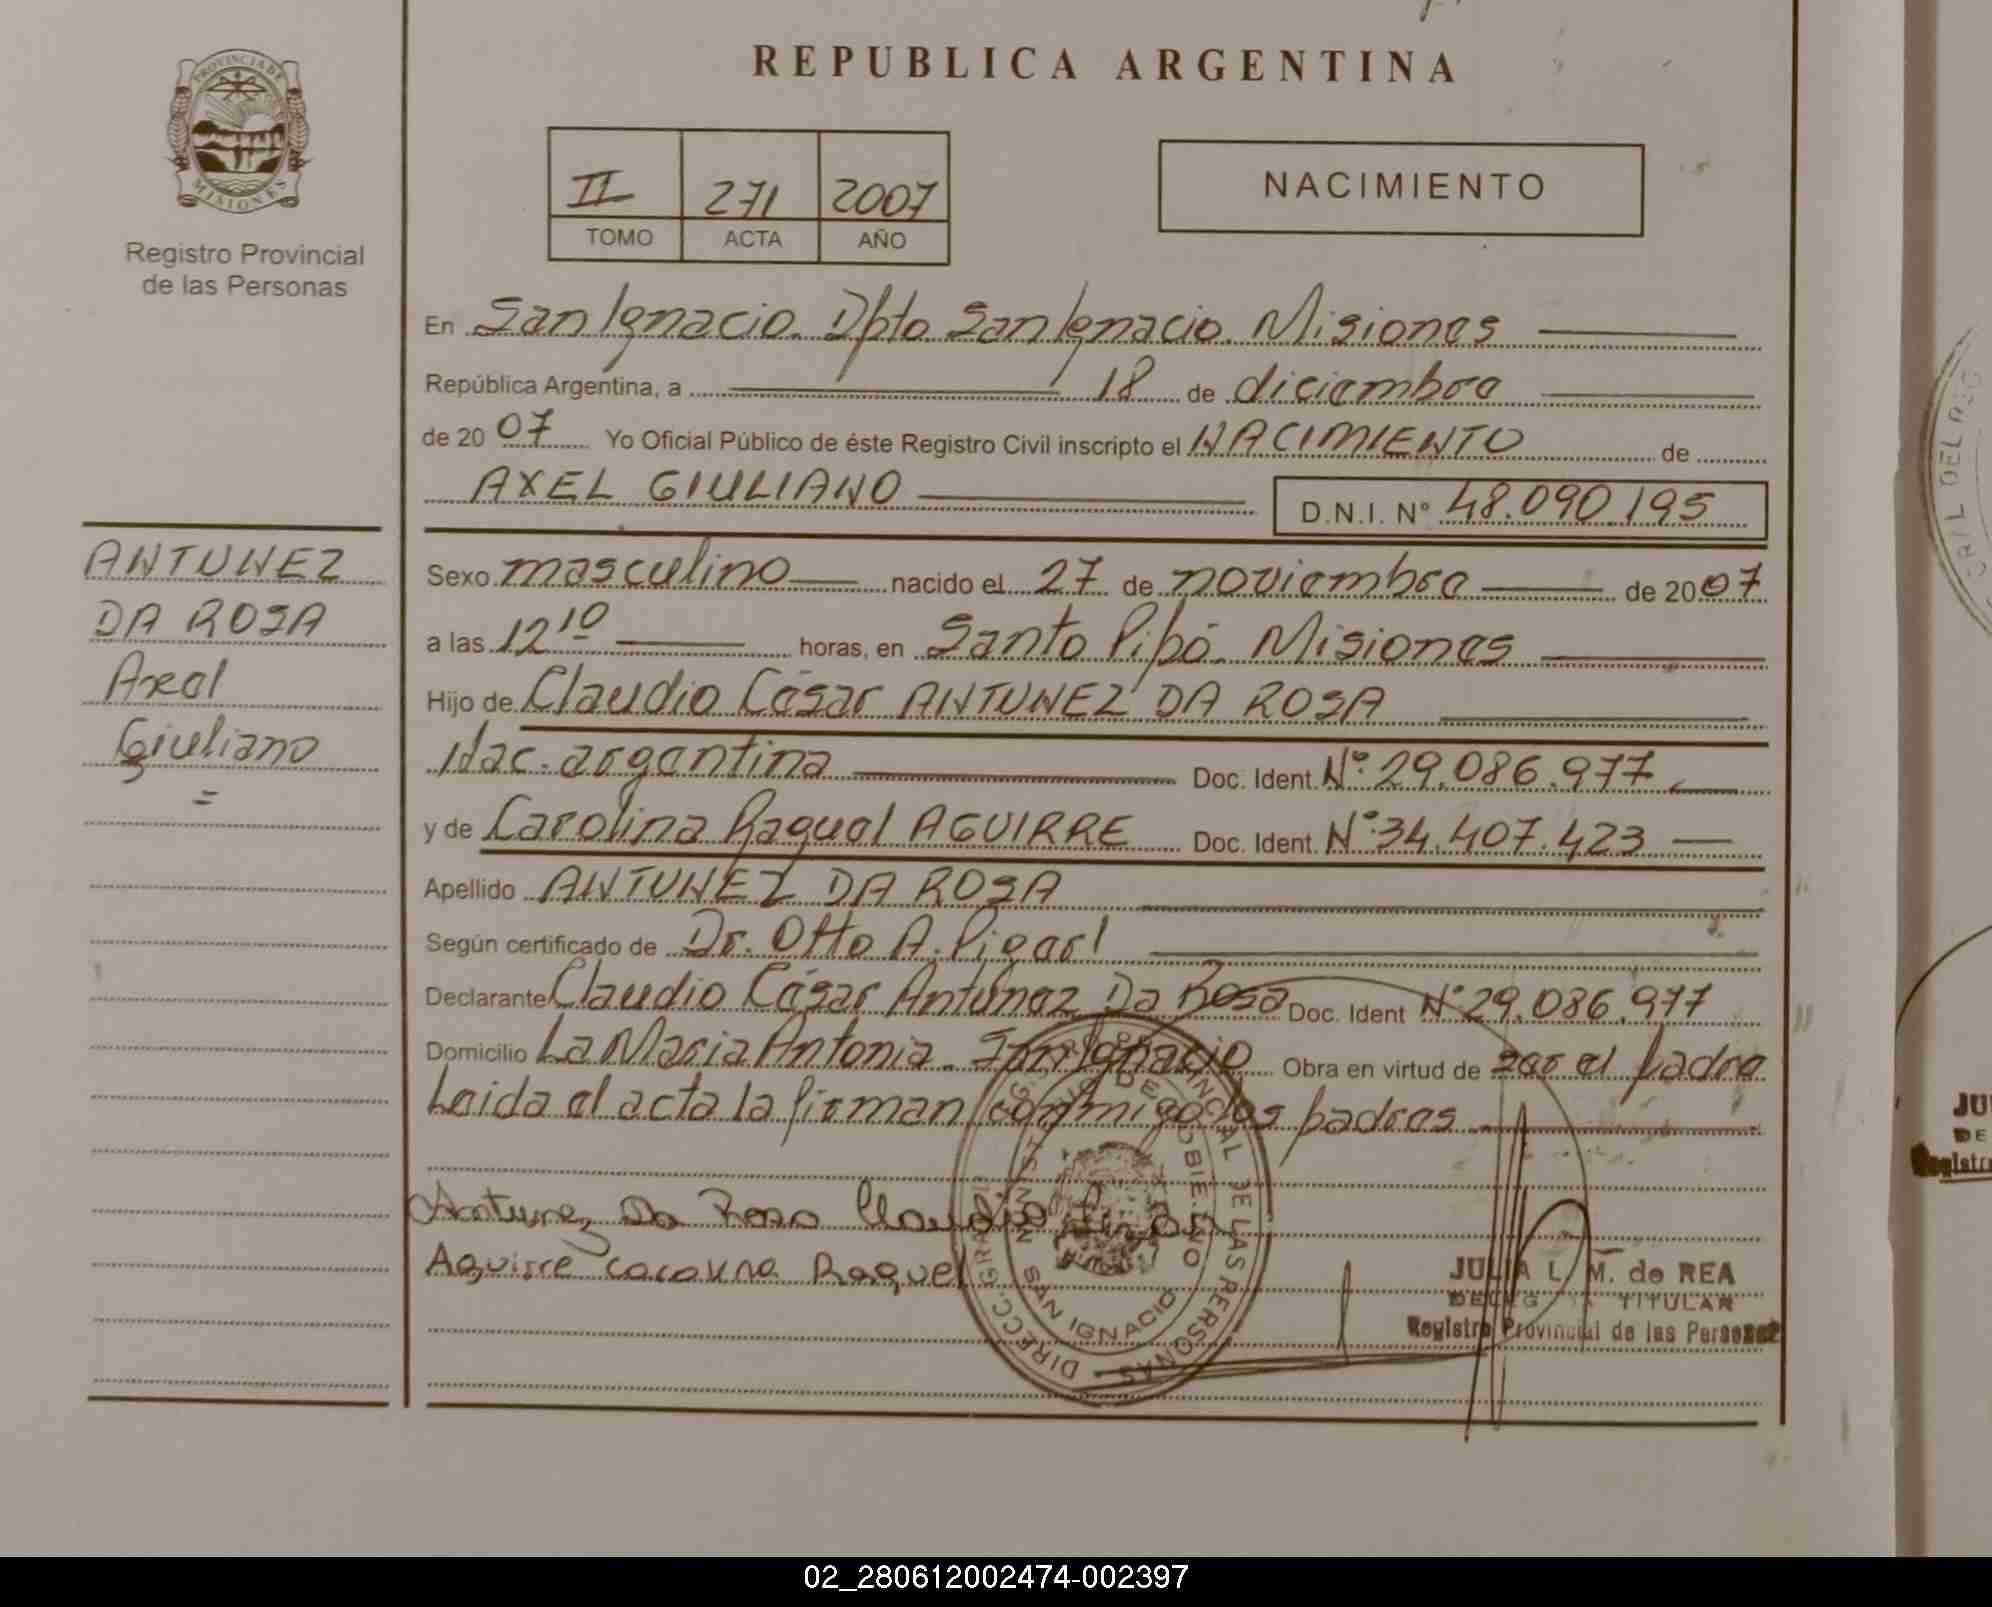 REPUBLICA ARGENTINA
PROVINCIA DE
MISIONES
Registro Provincial
de las Personas
II 271 2007
TOMO ACTA AÑO
NACIMIENTO
En San Ignacio. Dpto San Ignacio. Misiones
República Argentina, a 18 de diciembre
de 2007 Yo Oficial Público de éste Registro Civil inscripto el NACIMIENTO de
AXEL GIULIANO D.N.I. Nº 48.090.195
ANTUNEZ
DA ROSA
Axel
Giuliano
=
Sexo masculino nacido el 27 de noviembre de 2007
a las 12 10 horas, en Santo Pipó. Misiones
Hijo de Claudio César ANTUNEZ DA ROSA
Nac. argentina Doc. Ident. Nº 29.086.977
y de Carolina Raquel AGUIRRE Doc. Ident. Nº 34.407.423
Apellido ANTUNEZ DA ROSA
Según certificado de Dr. Otto A.
Declarante Claudio César Antunez Da Rosa Doc. Ident Nº 29.086.977
Domicilio La Maria Antonia. San Ignacio Obra en virtud de ser el padre
Leida el acta la firman conmigo los padres
Antunez Da Rosa Claudio
Aguirre Carolina Raquel
SAN IGNACIO
DE LAS PERSONAS
JULIA L. M. de REA
DELEGADA TITULAR
Registro Provincial de las Personas
02_280612002474-002397